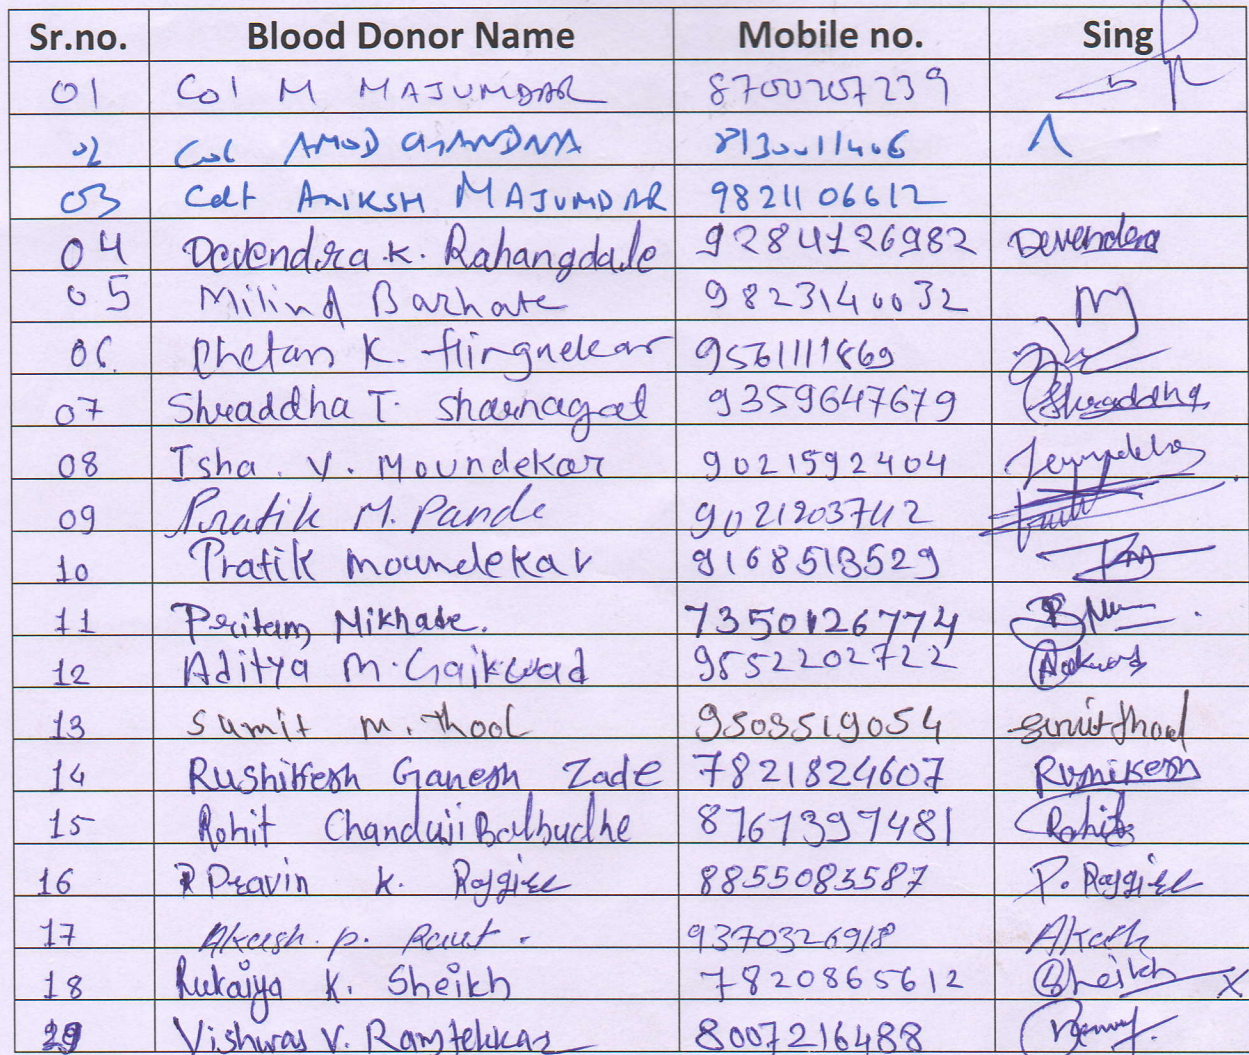 Sr.no. Blood Donor Name Mobile no. Sing
01 Col M MAJUMDAR 8700207239
02 Col AMOD CHANDNA 8130011406
03 Cdt ANIKSH MAJUMDAR 9821106612
04 Devendra.K. Rahangdale 9284126982 Devendera
05 Milind Barhate 9823140032
06. Chetan K. Hingnekar 9561111869
07 Shraddha T. sharnagat 9359647679 Shraddha
08 Isha. V. Moundekar 9021592404
09 Pratik M. Pande 9021203742
10 Pratik moundekar 9168513529
11 Pritam Nikhade. 7350126774
12 Aditya M. Gaikwad 9552202722
13 Sumit m. Thool 9503519054 sumit thool
14 Rushikesh Ganesh Zade 7821824607 Rushikesh
15 Rohit Chanduji Balbudhe 8767397481 Rohit
16 Pravin K. Rajgire 8855083587 P. Rajgire
17 Akash. p. Raut. 9370326918 Akash
18 Rukaiya K. Sheikh 7820865612 Sheikh x
Vishwas V. Ramtekkar 8007216488